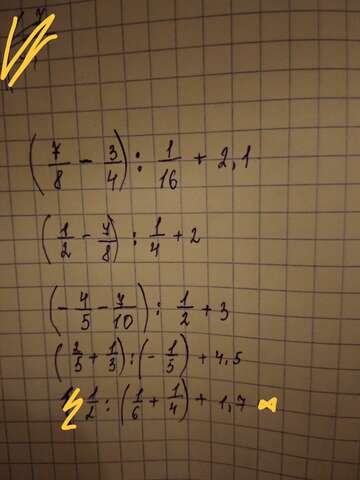 (7/8 - 3/4) : 1/16 + 2,1
(1/2 - 7/8) : 1/4 + 2
(-4/5 - 7/10) : 1/2 + 3
(2/5 + 1/3) : (-1/5) + 4,5
1/2 : (1/6 + 1/4) + 1,7